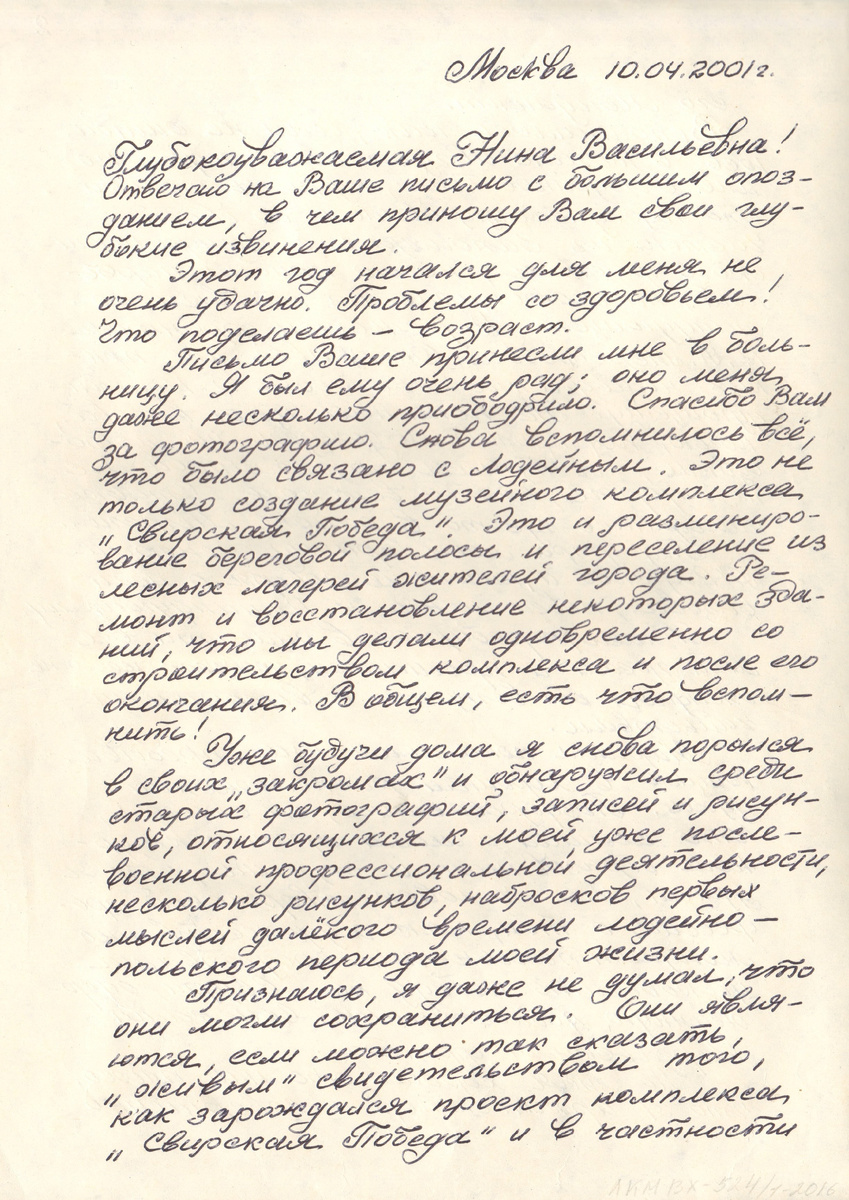 Москва 10.04.2001г.
Глубокоуважаемая Нина Васильевна!
Отвечаю на Ваше письмо с большим опоз-
данием, в чем приношу Вам свои глу-
бокие извинения.
Этот год начался для меня не
очень удачно. Проблемы со здоровьем!
Что поделаешь – возраст.
Письмо Ваше принесли мне в боль-
ницу. Я был ему очень рад; оно меня
даже несколько приободрило. Спасибо Вам
за фотографию. Снова вспомнилось всё,
что было связано с Лодейным. Это не
только создание музейного комплекса
„Свирская Победа". Это и разминиро-
вание береговой полосы и переселение из
лесных лагерей жителей города. Ре-
монт и восстановление некоторых зда-
ний, что мы делали одновременно со
строительством комплекса и после его
окончания. В общем, есть что вспом-
нить!
Уже будучи дома я снова порылся
в своих „закромах" и обнаружил среди
старых фотографий, записей и рисун-
ков, относящихся к моей, уже после-
военной профессиональной деятельности,
несколько рисунков, набросков первых
мыслей далёкого времени лодейно-
польского периода моей жизни.
Признаюсь, я даже не думал, что
они могли сохраниться. Они явля-
ются, если можно так сказать,
„живым" свидетельством того,
как зарождался проект комплекса
„Свирская Победа" и в частности
ЛКМ ВХ-524/1-2016